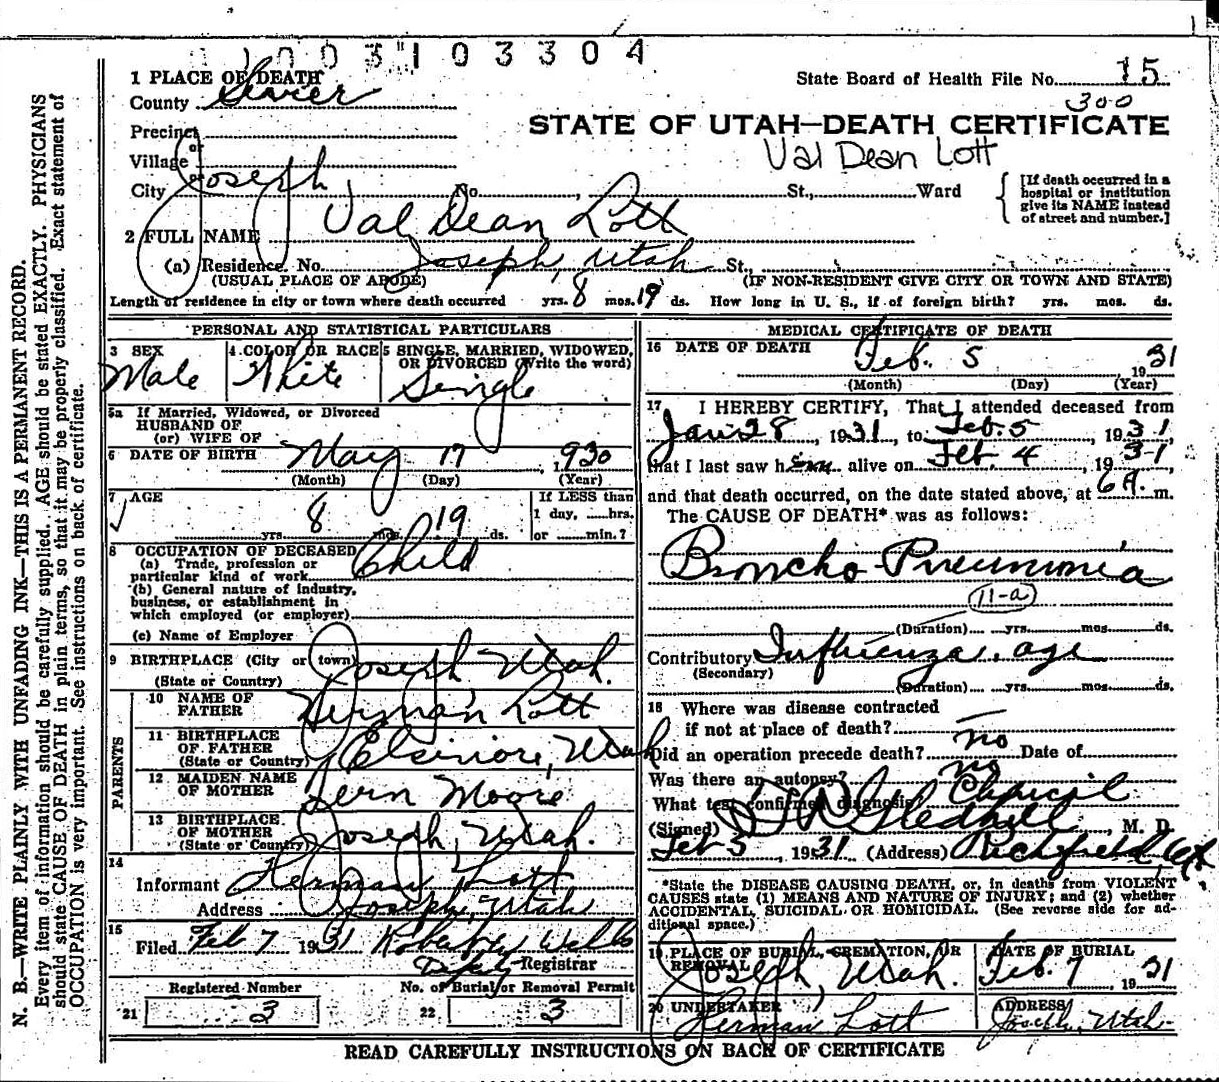 1003103304
1 PLACE OF DEATH
State Board of Health File No. 15
County Sevier
300
Precinct
STATE OF UTAH—DEATH CERTIFICATE
or
Val Dean Lott
Village
or
City Joseph No. , St., Ward
[If death occurred in a hospital or institution give its NAME instead of street and number.]
2 FULL NAME Val Dean Lott
(a) Residence. No. Joseph, Utah St.,
(USUAL PLACE OF ABODE) (IF NON-RESIDENT GIVE CITY OR TOWN AND STATE)
Length of residence in city or town where death occurred yrs. 8 mos. 19 ds. How long in U. S., if of foreign birth? yrs. mos. ds.
PERSONAL AND STATISTICAL PARTICULARS
3 SEX 4 COLOR OR RACE 5 SINGLE, MARRIED, WIDOWED,
OR DIVORCED (Write the word)
Male White Single
5a If Married, Widowed, or Divorced
HUSBAND OF
(or) WIFE OF
6 DATE OF BIRTH May 17, 1930
(Month) (Day) (Year)
7 AGE If LESS than
1 day, ......hrs.
yrs. 8 mos. 19 ds. or ......min.?
8 OCCUPATION OF DECEASED
(a) Trade, profession or
particular kind of work Child
(b) General nature of industry,
business, or establishment in
which employed (or employer)
(c) Name of Employer
9 BIRTHPLACE (City or town) Joseph Utah.
(State or Country)
PARENTS
10 NAME OF
FATHER Herman Lott
11 BIRTHPLACE
OF FATHER Elsinore, Utah
(State or Country)
12 MAIDEN NAME
OF MOTHER Fern Moore
13 BIRTHPLACE
OF MOTHER Joseph, Utah.
(State or Country)
14
Informant Herman Lott
Address Joseph, Utah
15
Filed Feb 7 1931 Wells
Deputy Registrar
Registered Number No. of Burial or Removal Permit
21 3 22 3
MEDICAL CERTIFICATE OF DEATH
16 DATE OF DEATH Feb. 5 1931
(Month) (Day) (Year)
17 I HEREBY CERTIFY, That I attended deceased from
Jan 28, 1931, to Feb. 5, 1931,
that I last saw him alive on Feb. 4, 1931
and that death occurred, on the date stated above, at 6 A. m.
The CAUSE OF DEATH* was as follows:
Broncho Pneumonia
11-a
(Duration) yrs. mos. ds.
Contributory Influenza, age
(Secondary)
(Duration) yrs. mos. ds.
18 Where was disease contracted
if not at place of death? —
Did an operation precede death? no Date of
Was there an autopsy? no
What test confirmed diagnosis? Clinical
(Signed) Gledhill, M. D.
Feb 5, 1931 (Address) Richfield, Ut.
*State the DISEASE CAUSING DEATH, or, in deaths from VIOLENT
CAUSES state (1) MEANS AND NATURE OF INJURY; and (2) whether
ACCIDENTAL, SUICIDAL OR HOMICIDAL. (See reverse side for ad-
ditional space.)
19 PLACE OF BURIAL, CREMATION, OR
REMOVAL Joseph, Utah.
DATE OF BURIAL
Feb. 7 1931
20 UNDERTAKER
Herman Lott
ADDRESS
Joseph, Utah
READ CAREFULLY INSTRUCTIONS ON BACK OF CERTIFICATE
N. B.—WRITE PLAINLY WITH UNFADING INK—THIS IS A PERMANENT RECORD.
Every item of information should be carefully supplied. AGE should be stated EXACTLY. PHYSICIANS
should state CAUSE OF DEATH in plain terms, so that it may be properly classified. Exact statement of
OCCUPATION is very important. See instructions on back of certificate.